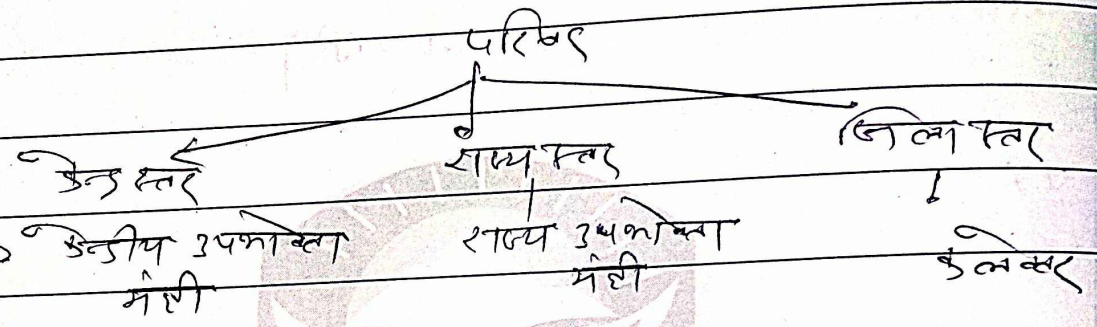 परिषद
केन्द्र स्तर
राज्य स्तर
जिला स्तर
केन्द्रीय उपभोक्ता
मंत्री
राज्य उपभोक्ता
मंत्री
कलेक्टर